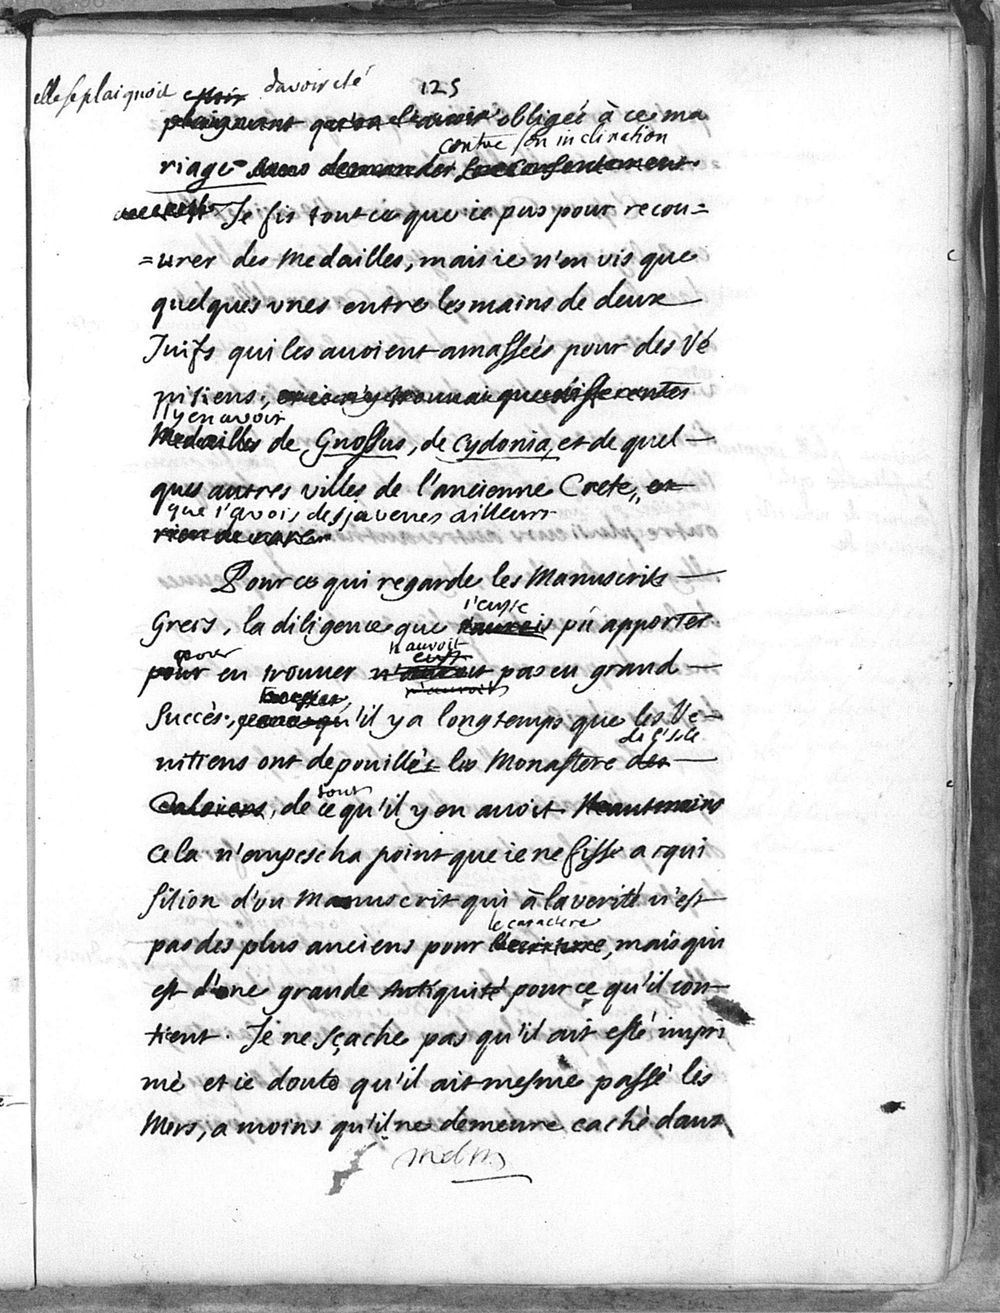 125
elle se plaignoit d'avoir eté
plaignant obligée à ce ma
contre son inclination
riage sans demander son consentement
Je fis tout ce que ie pus pour recou=
=urer des Medailles, mais ie n'en vis que
quelques vnes entre les mains de deux
Juifs qui les auoient amassées pour des Vé
nitiens, et ie n'y trouuai que differentes
Il y en avoir
Medailles de Gnossus, de Cydonia, et de quel
ques autres villes de l'ancienne Crete, et
que i'avois desja veües ailleurs
rien de rare
Pour ce qui regarde les Manuscrits
i'eusse
Grecs, la diligence que i'aurois pû apporter
pour
pour en trouuer n'auroit pas eu grand
n'auvoit
eust
n'auroit
succès, qu'il y a longtemps que les Ve=
de l'isle
nitiens ont depouillés les Monastere des
tout
Caloiers, de ce qu'il y en auoit Neantmoins
Cela n'empescha point que ie ne fisse acqui
sition d'vn Manuscrit qui à la verité n'est
le caractere
pas des plus anciens pour l'ecriture, mais qui
est d'une grande Antiquité pour ce qu'il con
tient. Je ne sçache pas qu'il ait esté impri
mé et ie doute qu'il ait mesme passé les
Mers, a moins qu'il ne demeure caché dans